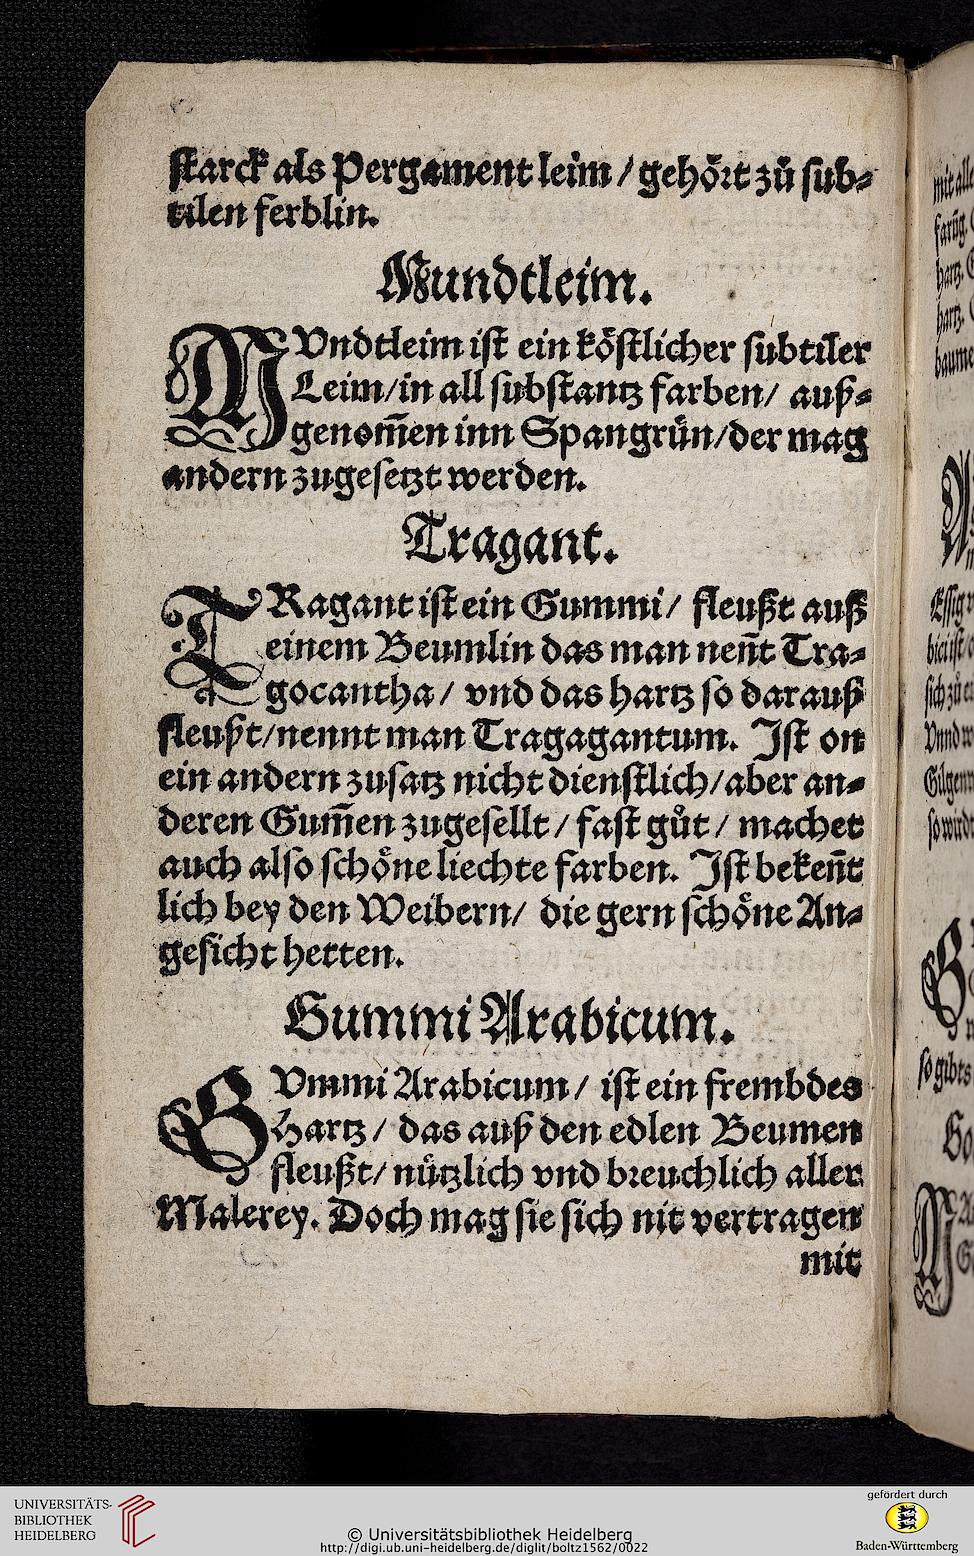 starck als Pergament leim / gehört zů sub-
tilen ferblin.
Mundtleim.
MVndtleim ist ein köstlicher subtiler
Leim/in all substantz farben/ auß-
genom̃en inn Spangrün/der mag
andern zugesetzt werden.
Tragant.
TRagant ist ein Gummi/ fleußt auß
einem Beumlin das man neñt Tra-
gocantha/ vnd das hartz so darauß
fleußt/nennt man Tragagantum. Ist on
ein andern zusatz nicht dienstlich/aber an-
deren Gum̃en zugesellt / fast gůt / machet
auch also schöne liechte farben. Ist bekeñt
lich bey den Weibern/ die gern schöne An-
gesicht hetten.
Gummi Arabicum.
GVmmi Arabicum/ ist ein frembdes
Hartz/ das auß den edlen Beumen
fleußt/ nützlich vnd breuchlich aller
Malerey. Doch mag sie sich nit vertragen
mit
UNIVERSITÄTS-
BIBLIOTHEK
HEIDELBERG
© Universitätsbibliothek Heidelberg
http://digi.ub.uni-heidelberg.de/diglit/boltz1562/0022
gefördert durch
Baden-Württemberg